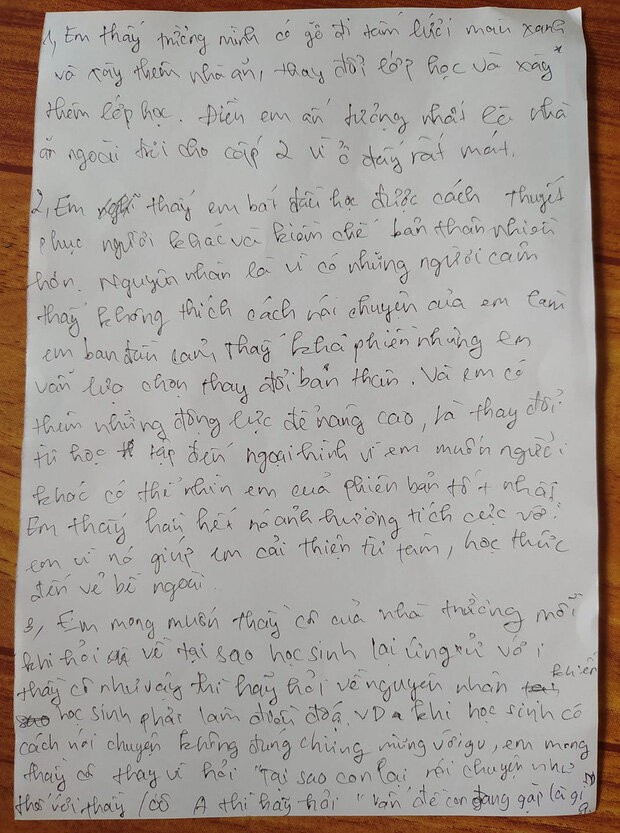 1, Em thấy trường mình có gỡ đi tấm lưới màu xanh
và xây thêm nhà ăn, thay đổi lớp học và xây
thêm lớp học. Điều em ấn tượng nhất là nhà
ăn ngoài trời cho cấp 2 vì ở đấy rất mát.
2, Em thấy em bắt đầu học được cách thuyết
phục người khác và kiềm chế bản thân nhiều
hơn. Nguyên nhân là vì có những người cảm
thấy không thích cách nói chuyện của em làm
em ban đầu cảm thấy khá phiền nhưng em
vẫn lựa chọn thay đổi bản thân. Và em có
thêm những động lực để nâng cao, và thay đổi
từ học tập đến ngoại hình vì em muốn người
khác có thể nhìn em của phiên bản tốt nhất
Em thấy hầu hết nó ảnh hưởng tích cực với
em vì nó giúp em cải thiện từ tâm, học thức
đến vẻ bề ngoài.
3, Em mong muốn thầy cô của nhà trường mỗi
khi hỏi về tại sao học sinh lại ứng xử với
thầy cô như vậy thì hãy hỏi về nguyên nhân khiến
học sinh phải làm điều đó. VD khi học sinh có
cách nói chuyện không đúng chừng mực với gv, em mong
thầy cô thay vì hỏi "Tại sao con lại nói chuyện như
thế với thầy /cô A thì hãy hỏi "vấn đề con đang gặp là gì